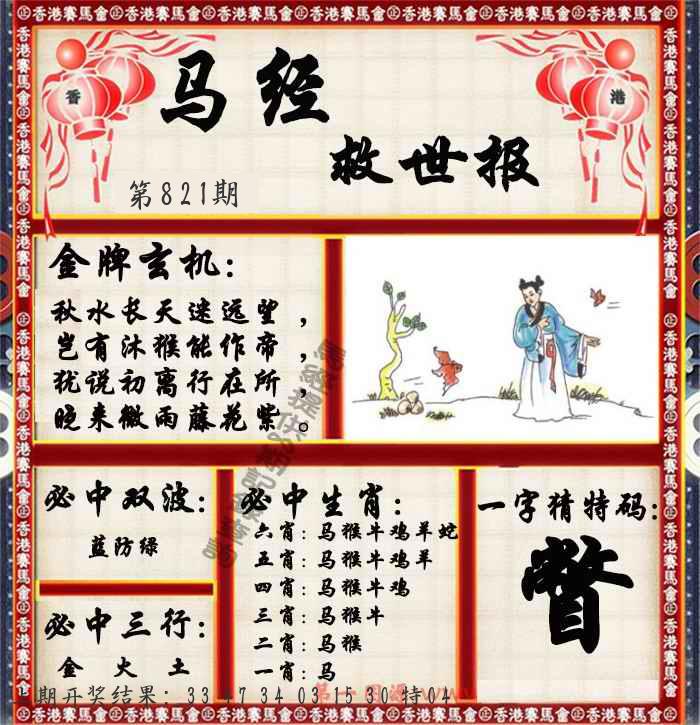 香港賽馬會
香 港
马经
救世报
第821期
金牌玄机：
秋水长天迷远望，
岂有沐猴能作帝，
犹说初离行在所，
晚来微雨藤花紫。
必中双波：
蓝防绿
必中三行：
金 火 土
必中生肖：
六肖：马猴牛鸡羊蛇
五肖：马猴牛鸡羊
四肖：马猴牛鸡
三肖：马猴牛
二肖：马猴
一肖：马
一字猜特码：
瞥
期开奖结果：33 47 34 03 15 30 特04